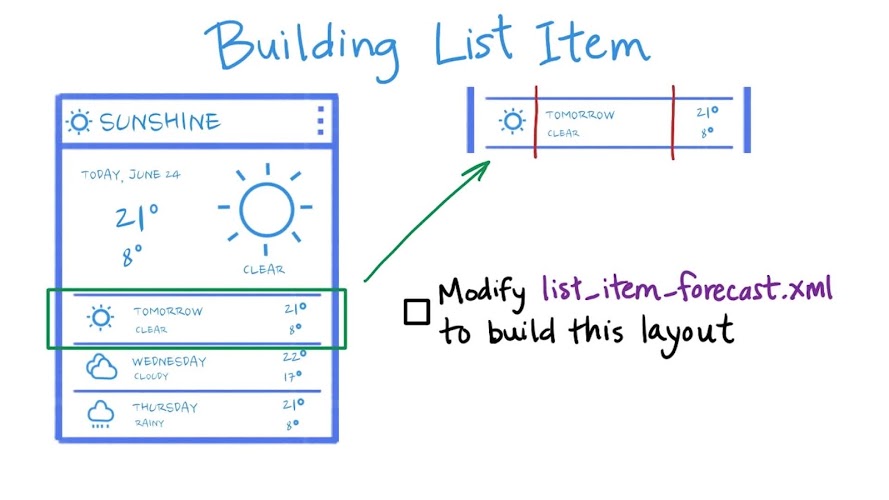 Building List Item
SUNSHINE
TODAY, JUNE 24
21°
8°
CLEAR
TOMORROW 21°
CLEAR 8°
WEDNESDAY 22°
CLOUDY 17°
THURSDAY 21°
RAINY 8°
TOMORROW 21°
CLEAR 8°
Modify list_item_forecast.xml
to build this layout